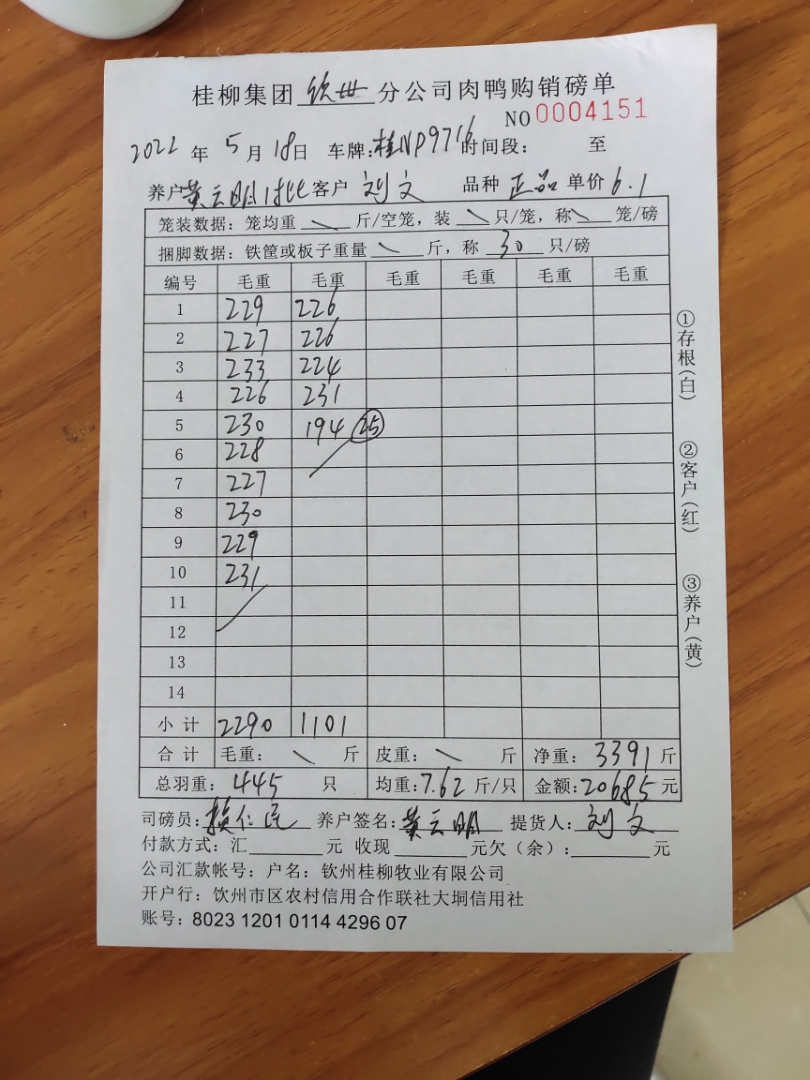 桂柳集团 钦州 分公司肉鸭购销磅单
NO 0004151
2022 年 5 月 18日 车牌:桂NP9716 时间段: 至
养户 黄云明 客户 刘文 品种 正品 单价 6.1
笼装数据: 笼均重 \ 斤/空笼, 装 \ 只/笼, 称 \ 笼/磅
捆脚数据: 铁筐或板子重量 \ 斤, 称 30 只/磅
编号 毛重 毛重 毛重 毛重 毛重 毛重
1 229 226
2 227 226
3 233 224
4 226 231
5 230 194 (25)
6 228
7 227
8 230
9 229
10 231
11
12
13
14
小计 2290 1101
合计 毛重: \ 斤 皮重: \ 斤 净重: 3391 斤
总羽重: 445 只 均重: 7.62 斤/只 金额: 20685 元
司磅员: 赖仁民 养户签名: 黄云明 提货人: 刘文
付款方式: 汇 元 收现 元欠(余): 元
公司汇款帐号: 户名: 钦州桂柳牧业有限公司
开户行: 饮州市区农村信用合作联社大垌信用社
账号: 8023 1201 0114 4296 07
①存根(白)
②客户(红)
③养户(黄)